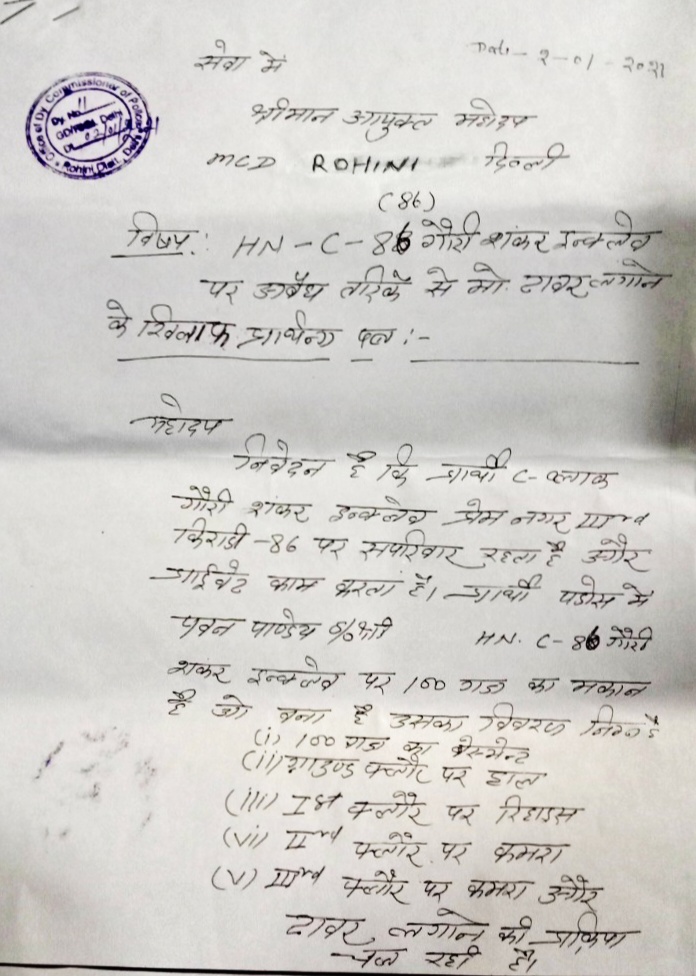 Date - 2-01-2021
सेवा में
Office of Dy. Commissioner of Police
Dy. No. 11
Dt. 02/01/21
Rohini Distt. Delhi
श्रीमान आयुक्त महोदय
MCD ROHINI दिल्ली
(86)
विषय: HN-C-86 गौरी शंकर इन्क्लेव
पर अवैध तरिके से मो. टावर लगाने
के खिलाफ प्रार्थना पत्र :-
महोदय
निवेदन है कि प्रार्थी C-ब्लाक
गौरी शंकर इन्क्लेव प्रेम नगर IIIrd
किराडी-86 पर सपरिवार रहता है और
प्राईवेट काम करता है। प्रार्थी पडोस में
पवन पाण्डेय S/o श्री HN. C-86 गौरी
शंकर इन्क्लेव पर 100 गज का मकान
है जो बना है उसका विवरण निम्न है
(i) 100 गज का बेस्मेन्ट
(ii) ग्राउण्ड फ्लौर पर हाल
(iii) Ist फ्लौर पर रिहाइस
(vi) IInd फ्लौर पर कमरा
(v) IIIrd फ्लौर पर कमरा और
टावर लगाने की प्रक्रिया
चल रही है।